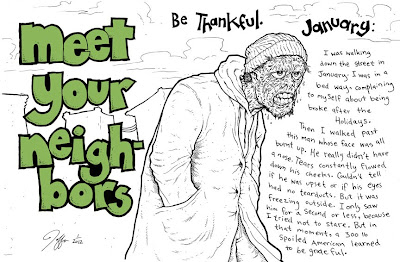 meet
your
neigh-
bors
Be Thankful.
January:
I was walking
down the street in
January; I was in a
bad way, complaining
to myself about being
broke after the
Holidays.
Then I walked past
this man whose face was all
burnt up. He really didn't have
a nose. Tears constantly flowed
down his cheeks. Couldn't tell
if he was upset or if his eyes
had no tearducts. But it was
freezing outside. I only saw
him for a second or less, because
I tried not to stare. But in
that moment, a 300 lb
Spoiled American learned
to be grateful.
2012